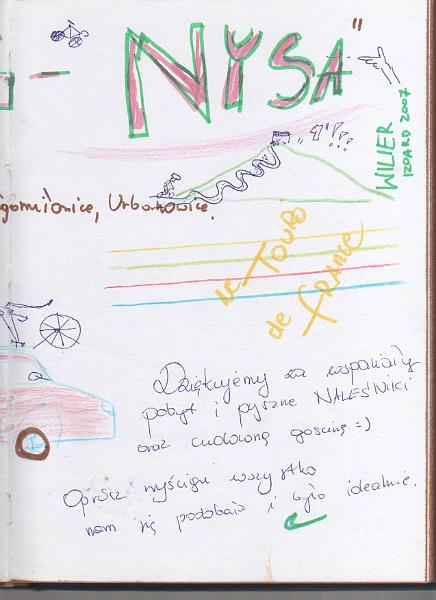 - NYSA"
„4"!?!
WILIER
IZOARD 2007
gomionice, Urbanowice.
le TOUR
de fRANCE
Dziękujemy za wspaniały
pobyt i pyszne NALEŚNIKI
oraz cudowną gościnę =)
Oprócz wyścigu wszystko
nam się podobało i było idealnie.